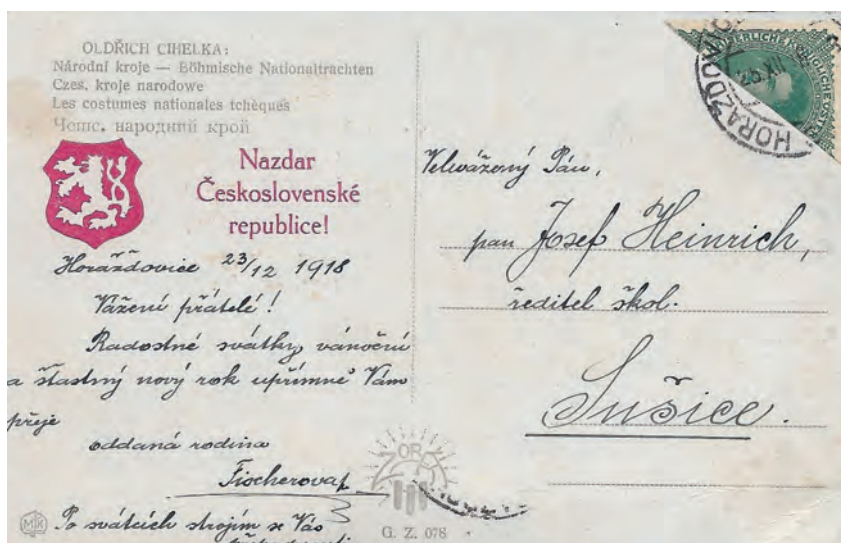 OLDŘICH CIHELKA:
Národní kroje — Böhmische Nationaltrachten
Czes. kroje narodowe
Les costumes nationales tchèques
Чешс. народний крой
Nazdar
Československé
republice!
Horažďovice 23/12 1918
Vážení přátelé!
Radostné svátky vánoční
a šťastný nový rok upřímně Vám
přeje
oddaná rodina
Fischerova
Po svátcích strojím se Vás
Velevážený Pán,
pan Josef Heinrich,
ředitel škol.
Sušice.
ZORA
MK
G. Z. 078
HORAŽDO
25.XII